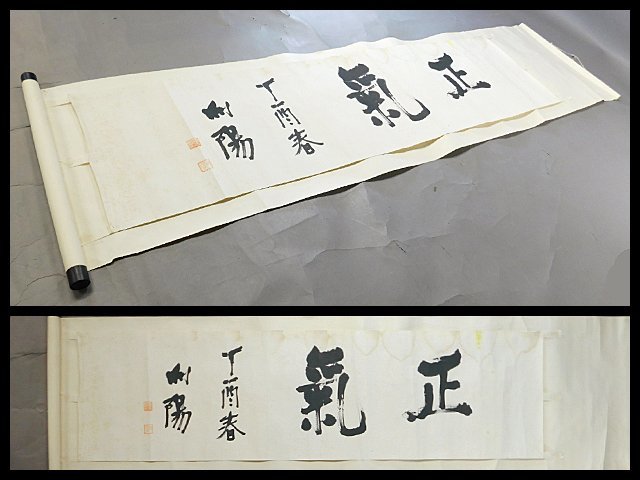 正氣
丁酉春
陽
正氣
丁酉春
陽